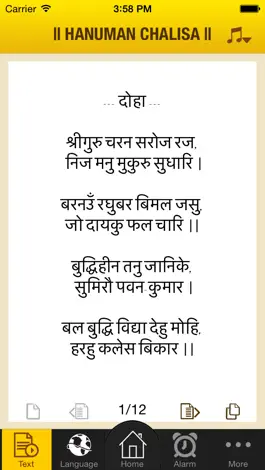 Carrier 3:58 PM
॥ HANUMAN CHALISA ॥
--- दोहा ---
श्रीगुरु चरन सरोज रज,
निज मनु मुकुरु सुधारि |
बरनउँ रघुबर बिमल जसु,
जो दायकु फल चारि ||
बुद्धिहीन तनु जानिके,
सुमिरौ पवन कुमार |
बल बुद्धि विद्या देहु मोहि,
हरहु कलेस बिकार ||
1/12
Text Language Home Alarm More